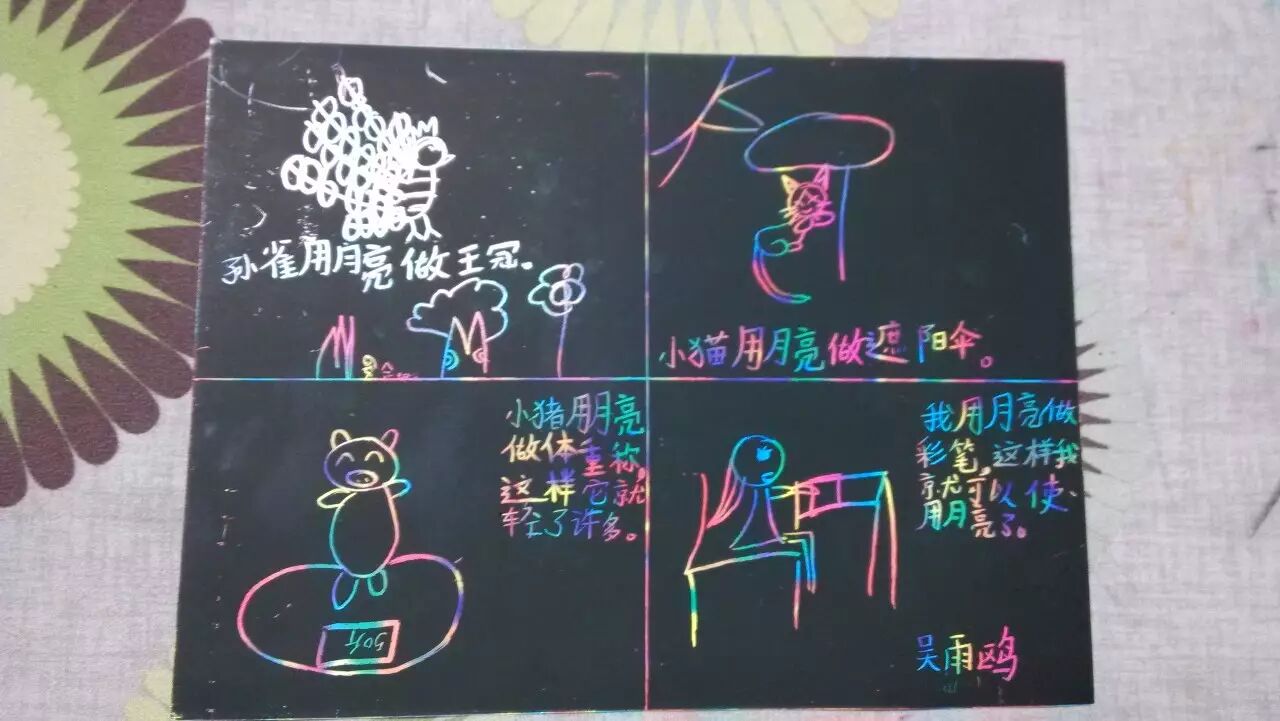 孙雀用月亮做王冠。
小猫用月亮做遮阳伞。
小猪用月亮
做体重称,
这样它就
轻了许多。
50斤
我用月亮做
彩笔,这样我
就可以使
用月亮了。
吴雨鸥